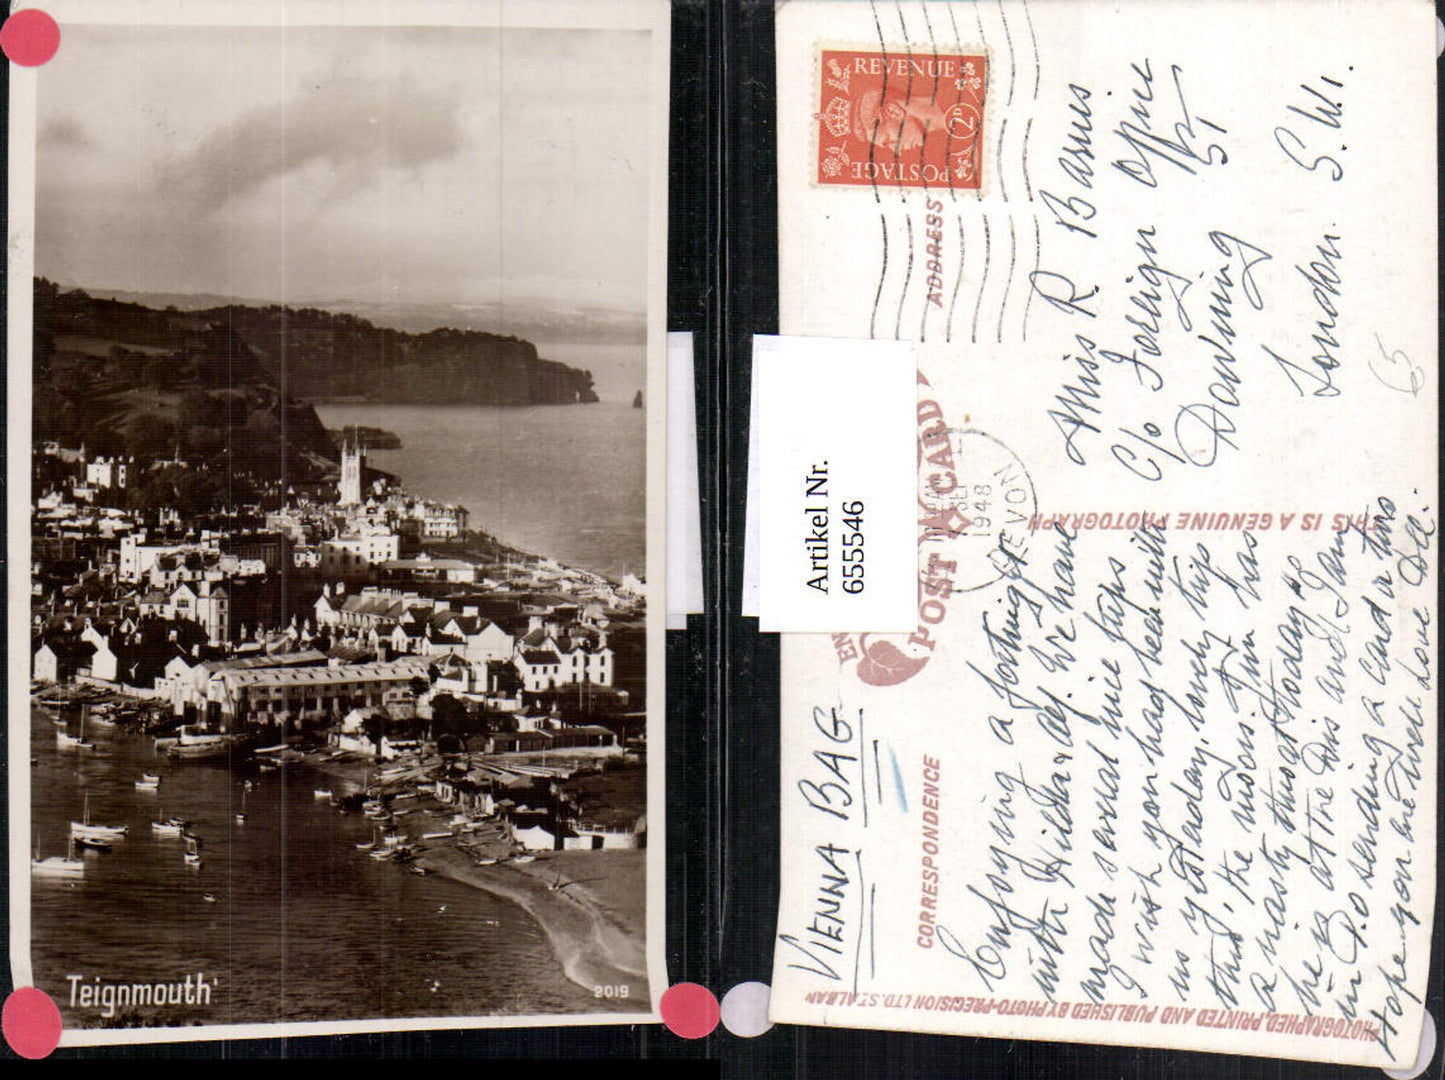 Teignmouth
2019
REVENUE
2D
POSTAGE
ADDRESS
SEP
1948
DEVON
Artikel Nr.
655546
POST CARD
THIS IS A GENUINE PHOTOGRAPH
CORRESPONDENCE
PHOTOGRAPHED, PRINTED AND PUBLISHED BY PHOTO-PRECISION LTD. ST. ALBANS
VIENNA BAG
Miss R. Barus
C/o Foreign Office
Downing St
London. S.W.1.
65
Enjoying a fortnight
with Hilda &. We have
made several nice trips
I wish you had been with
us yesterday, lovely trip
thro' the moors. Jim has
a nasty throat today so
he is at the Drs and I am
in P.O sending a card or two
Hope you are well. Love